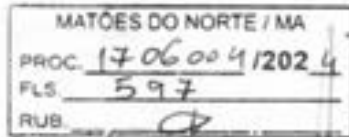 MATÕES DO NORTE / MA
PROC. 1706004/2024
FLS. 597
RUB.